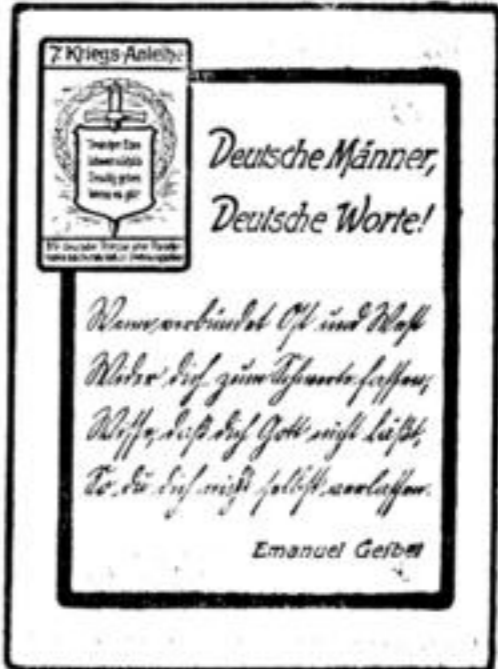 7. Kriegs-Anleihe
Deutsche Männer,
Deutsche Worte!
Wenn verbündet Ost und West
Wider dich zum Schwerte fassen,
Wisse, daß dich Gott nicht läßt,
So du dich nicht selbst verlassen.
Emanuel Geibel